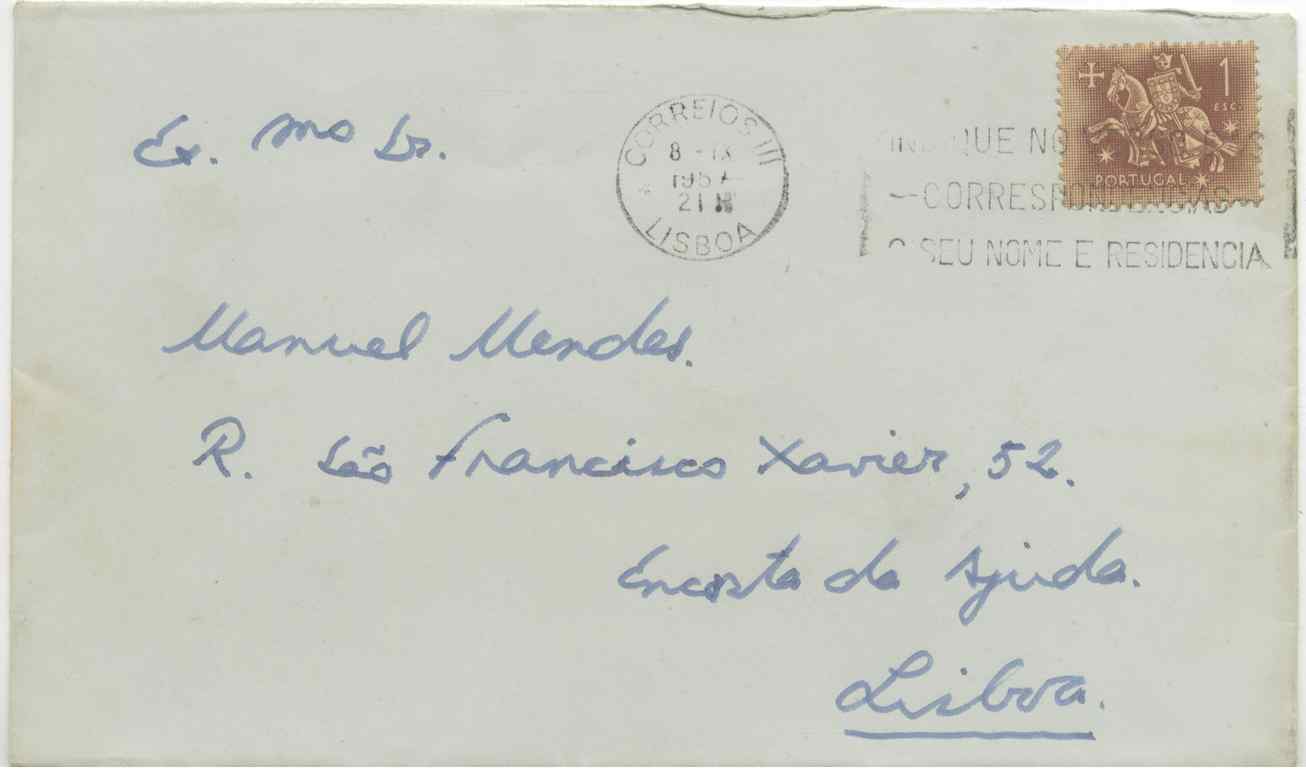 Ex. mo Sr.
CORREIOS III
8 - IX
195
21 H
LISBOA
1
ESC.
PORTUGAL
INDIQUE NO
CORRESPONDENCIAS
O SEU NOME E RESIDENCIA
Manuel Mendes.
R. São Francisco Xavier, 52.
Encosta da Ajuda.
Lisboa.